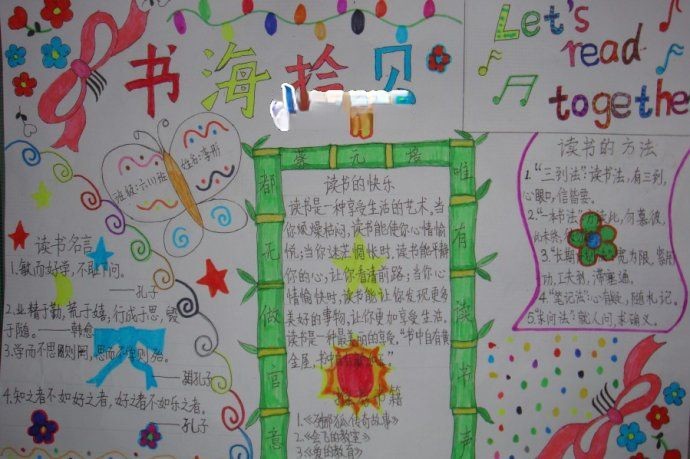 书海拾贝
Let's
read
together
班级:六(1)班
姓名:李彤
读书名言
1.敏而好学,不耻下问。
——孔子
2.业精于勤,荒于嬉,行成于思,毁
于随。——韩愈
3.学而不思则罔,思而不学则殆。
——孔子
4.知之者不如好之者,好之者不如乐之者。
——孔子
都无做官意
唯有读书声
读书的快乐
读书是一种享受生活的艺术。当
你烦燥枯闷,读书能使你心情愉
悦;当你迷茫惆怅时,读书能平静
你的心,让你看清前路;当你心
情愉快时,读书能让你发现更多
美好的事物,让你更加享受生活。
读书是一种最美丽的享受。"书中自有黄
金屋,
书籍
1.
2.《会飞的教室》
3.《爱的教育》
读书的方法
1."三到法":读书法,有三到,
心眼口,信皆要。
2."一本法"
3."长期
功,工夫到,滞塞通。
4."笔记法":心有疑,随札记。
5."求问法":就人问,求确义。